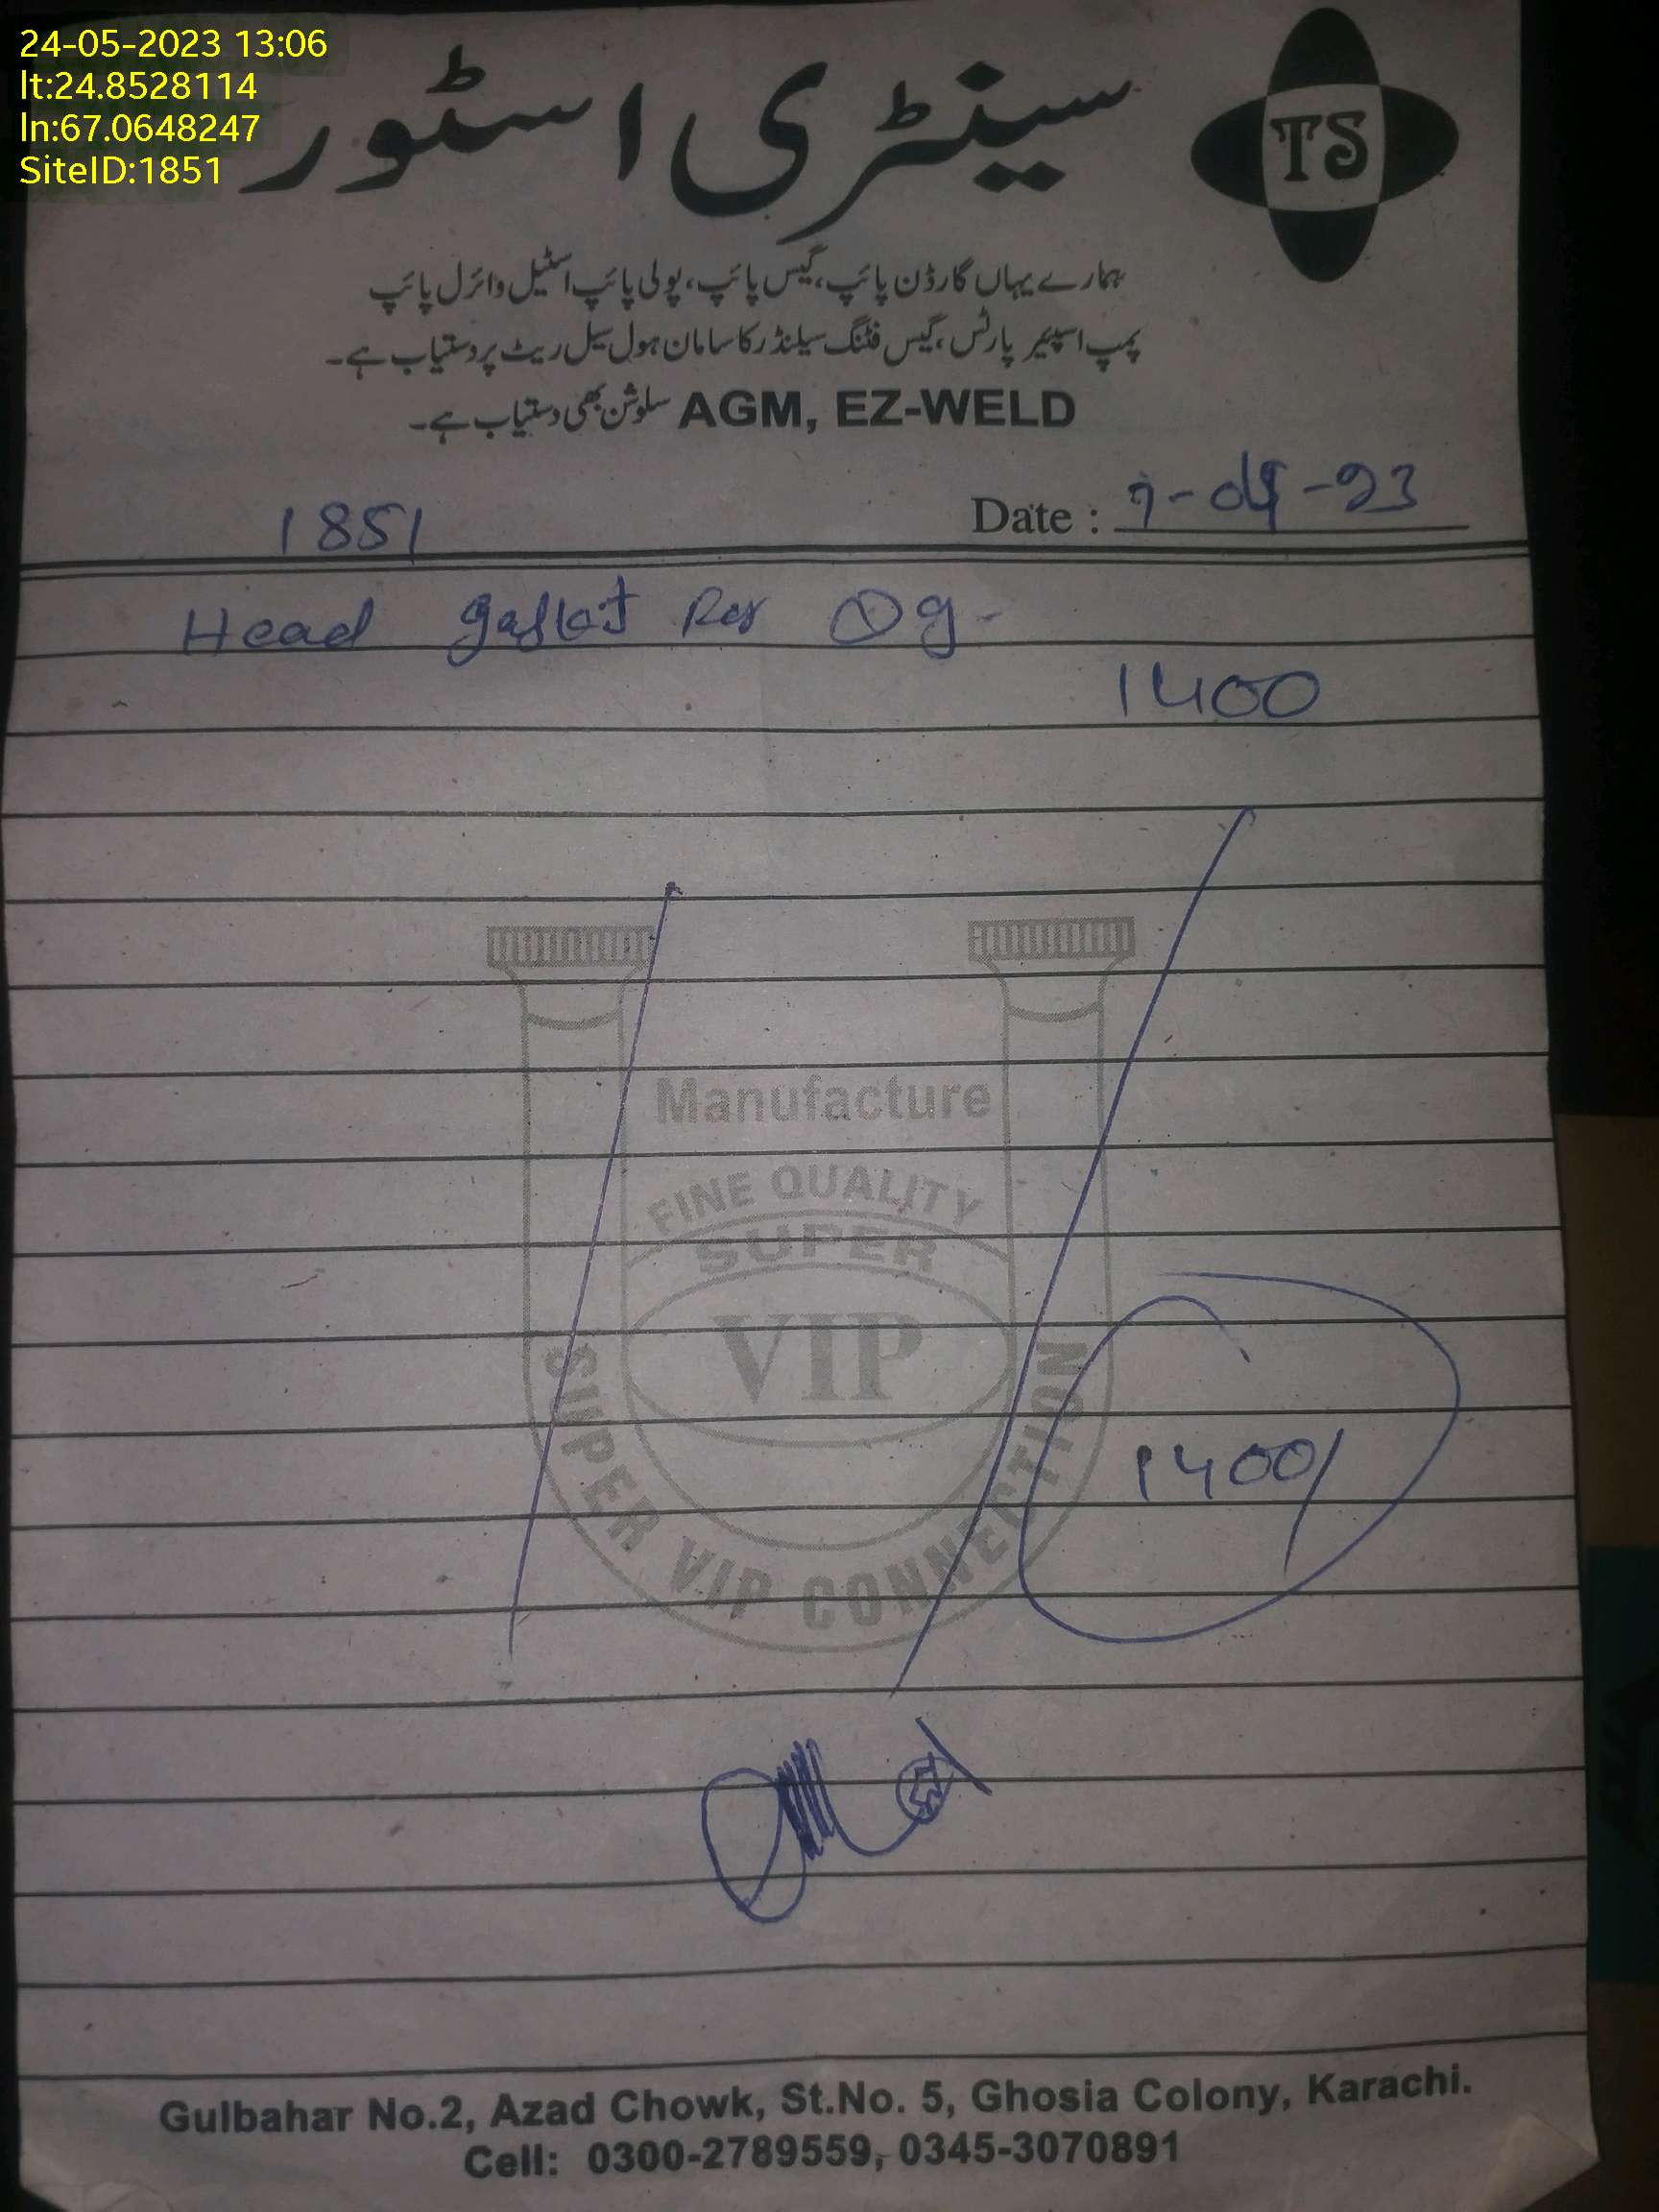 24-05-2023 13:06
lt:24.8528114
ln:67.0648247
SiteID:1851
سینٹری اسٹور
TS
ہمارے یہاں گارڈن پائپ، گیس پائپ، پولی پائپ اسٹیل وائرل پائپ
پمپ اسپیئر پارٹس، گیس فٹنگ سیلنڈر کا سامان ہول سیل ریٹ پر دستیاب ہے۔
AGM, EZ-WELD سلوشن بھی دستیاب ہے۔
1851
Date :
Head gasket
1400
Manufacture
FINE QUALITY
SUPER
VIP
SUPER VIP CONNECTION
1400/
Gulbahar No.2, Azad Chowk, St.No. 5, Ghosia Colony, Karachi.
Cell: 0300-2789559, 0345-3070891